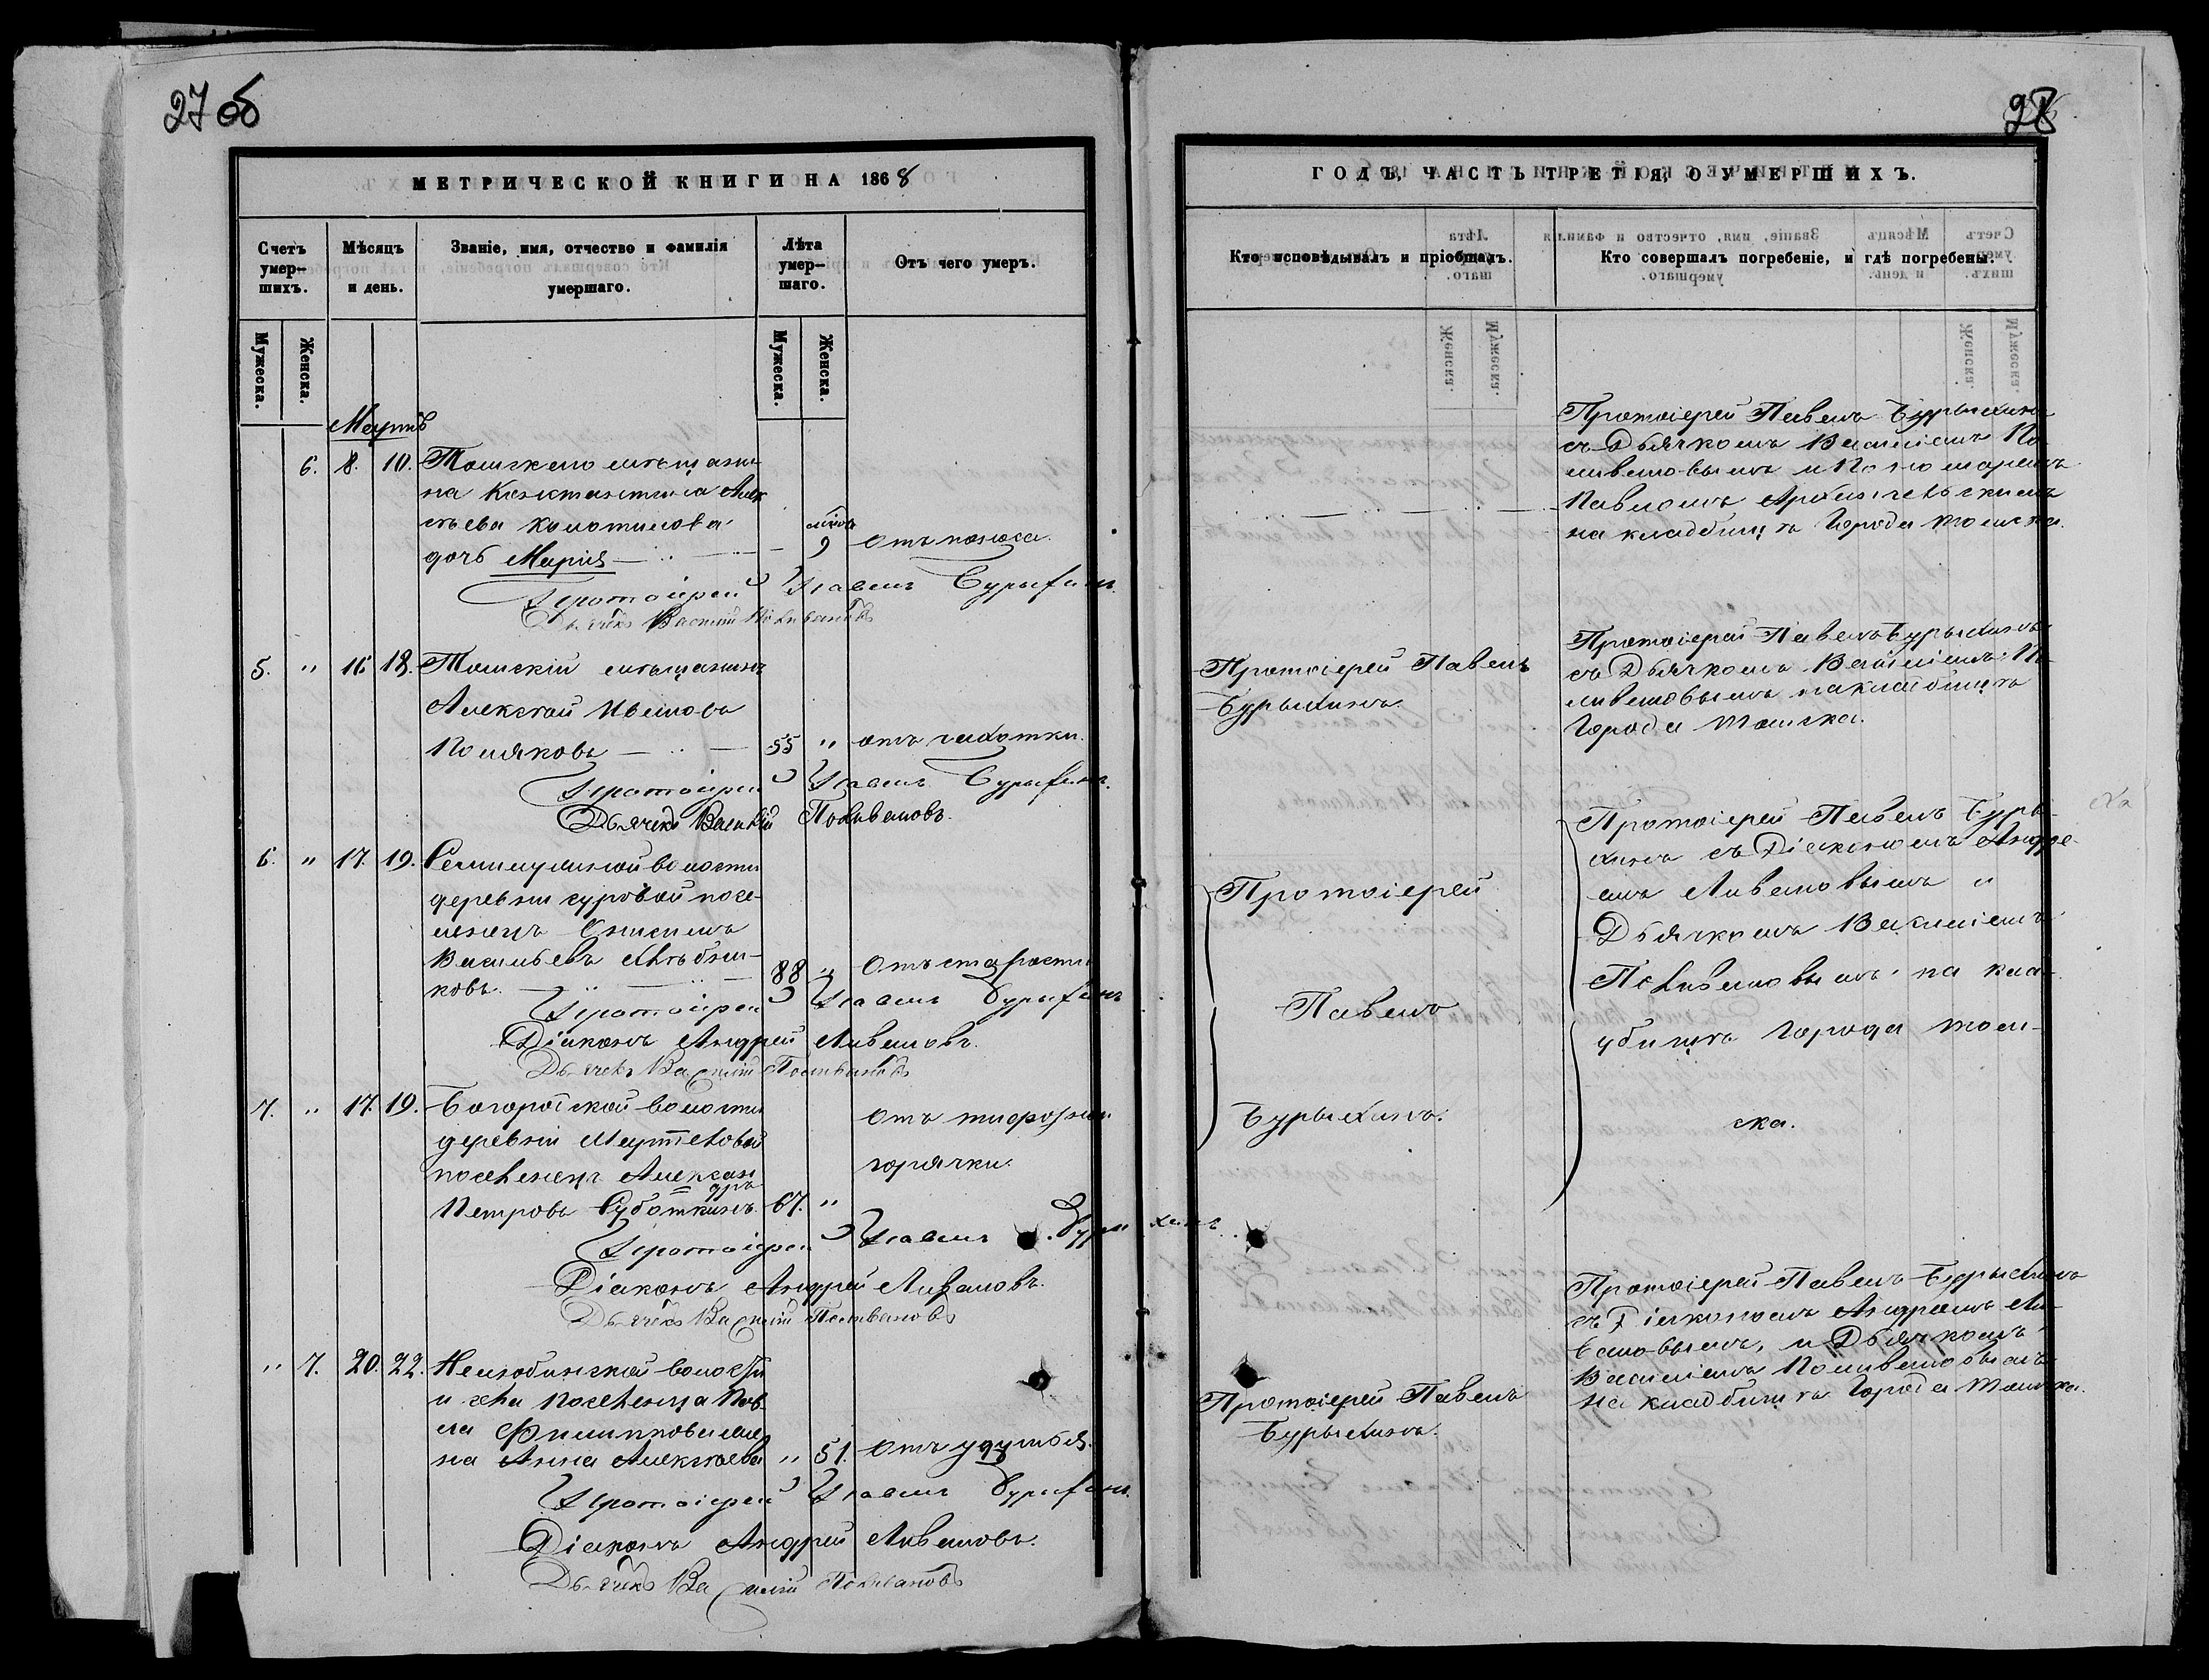 27 об
28
МЕТРИЧЕСКОЙ КНИГИ НА 1868
Счетъ умер-шихъ.
Мѣсяцъ и день.
Званіе, имя, отчество и фамилія умершаго.
Лѣта умер-шаго.
Отъ чего умеръ.
Мужеска.
Женска.
Мужеска.
Женска.
Мартъ
6. 8. 10. Томскаго мѣщани-
на Константина Алек
сѣева
дочь Марія 9 отъ поноса.
Протоіерей Павелъ Бурыхинъ
Дьячекъ Василій Поливановъ
5. " 16 18. Томскій мѣщанинъ
Алексѣй Ивановъ
Поляковъ 55 " отъ чахотки.
Протоіерей Павелъ Бурыхинъ.
Дьячекъ Василій Поливановъ.
6. " 17. 19. Семилужной волости
деревни суровой посе-
ленецъ
Васильевъ Хлѣбни-
ковъ. 88 " Отъ старости
Протоіерей Павелъ Бурыхинъ
Діаконъ Андрей Ливановъ.
Дьячекъ Василій Поливановъ
7. " 17. 19. Богородской волости отъ
деревни горячки.
поселенецъ Алексан
дръ
Петровъ Суботкинъ. 67. "
Протоіерей Павелъ Бурыхинъ
Діаконъ Андрей Ливановъ.
Дьячекъ Василій Поливановъ
" 7. 20. 22. Нелюбинской волости
поселенца Пав-
ла Филиппова же-
на Анна Алексѣева " 51. отъ удушья.
Протоіерей Павелъ Бурыхинъ.
Діаконъ Андрей Ливановъ.
Дьячекъ Василій Поливановъ
ГОДЪ, ЧАСТЬ ТРЕТІЯ, О УМЕРШИХЪ.
Кто исповѣдывалъ и пріобщалъ.
Кто совершалъ погребеніе, и гдѣ погребены.
Протоіерей Павелъ Бурыхинъ
съ Дьячкомъ Василіемъ По-
ливановымъ и Пономаремъ
Павломъ
на кладбищѣ Города Томска.
Протоіерей Павелъ
Бурыхинъ.
Протоіерей Павелъ Бурыхинъ
съ Дьячкомъ Василіемъ По-
ливановымъ на кладбищѣ
Города Томска.
Протоіерей
Павелъ
Бурыхинъ.
Протоіерей Павелъ Буры-
хинъ съ Діакономъ Андре-
емъ Ливановымъ и
Дьячкомъ Василіемъ
Поливановымъ на кла-
дбищѣ Города Том-
ска.
Протоіерей Павелъ
Бурыхинъ.
Протоіерей Павелъ Бурыхинъ
съ Діакономъ Андреемъ Ли-
вановымъ, и Дьячкомъ
Василіемъ Поливановымъ
на кладбищѣ Города Томска.